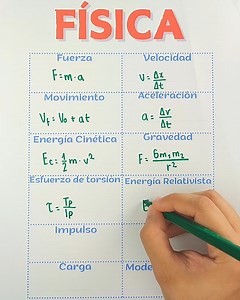 FÍSICA
Fuerza Velocidad
F=m·a V=Δx/Δt
Movimiento Aceleración
Vf=Vo+at a=Δv/Δt
Energía Cinética Gravedad
Ec=1/2 m·v² F=Gm₁m₂/r²
Esfuerzo de torsión Energía Relativista
τ=Tρ/Iρ
Impulso
Carga